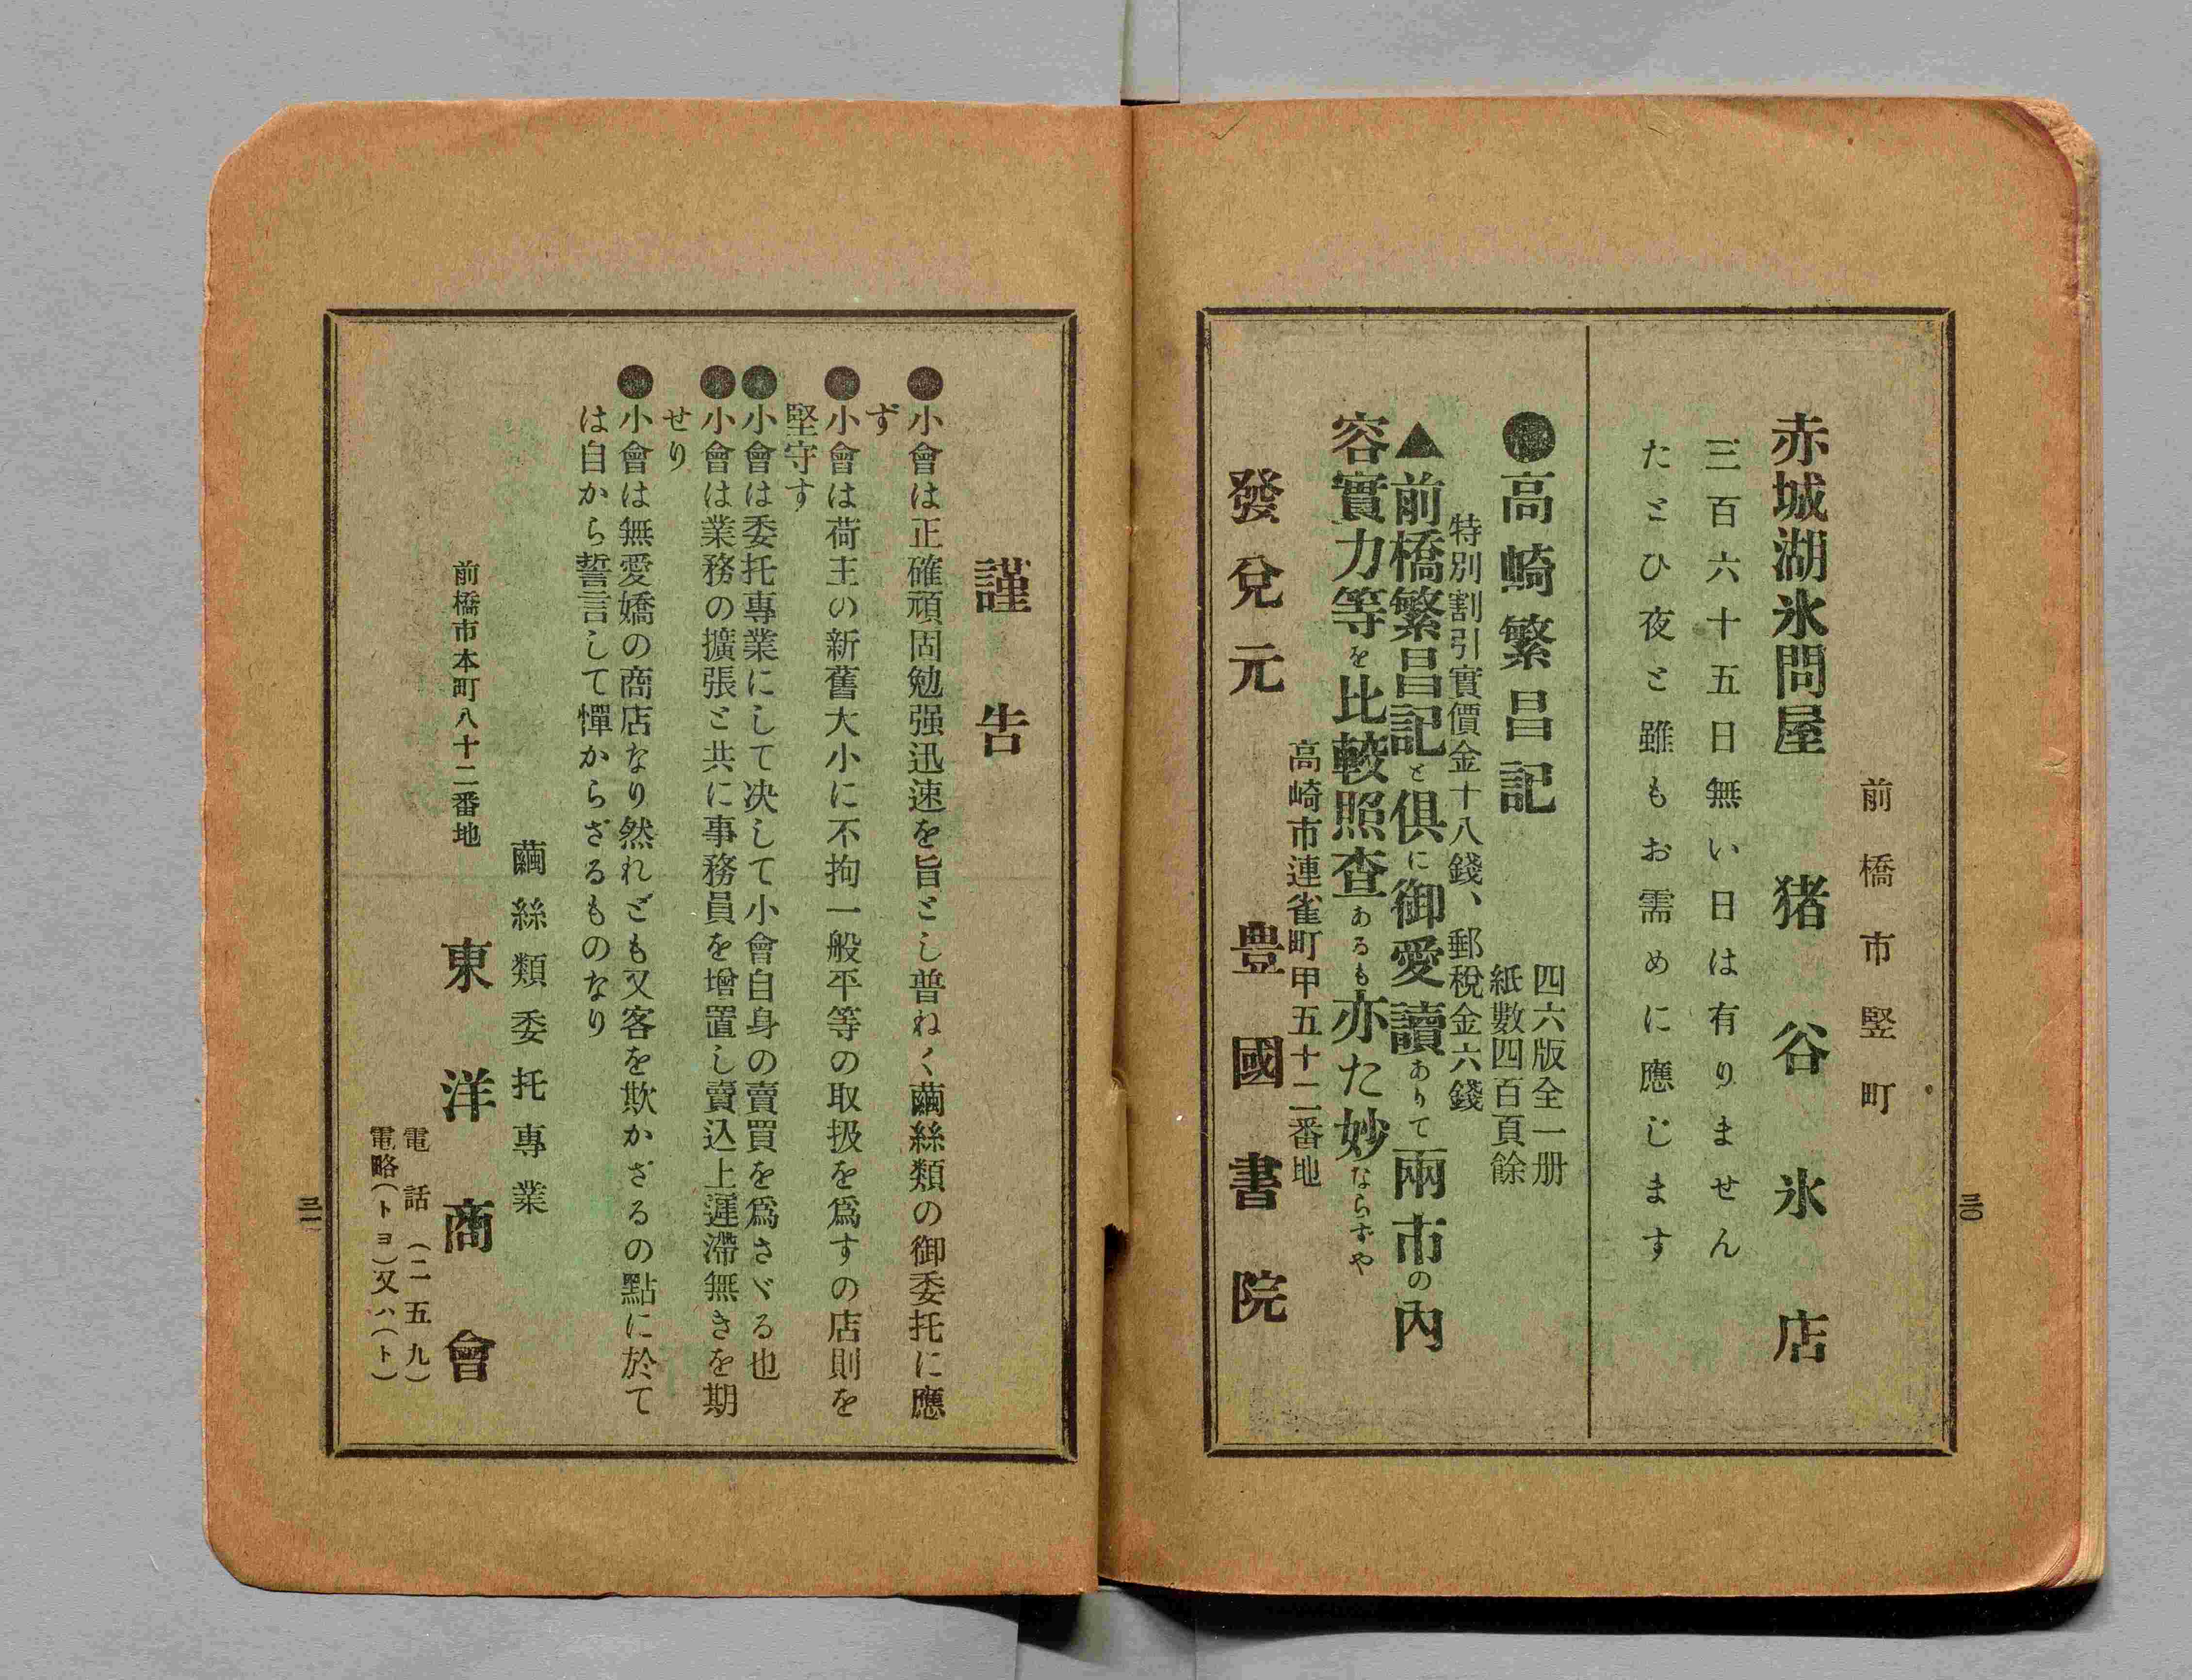 前橋市竪町
赤城湖氷問屋　猪谷氷店
三百六十五日無い日は有りません
たとひ夜と雖もお需めに應じます
●高崎繁昌記
四六版全一册
紙數四百頁餘
特別割引實價金十八錢、郵税金六錢
▲前橋繁昌記と俱に御愛讀ありて兩市の內
容實力等を比較照査あるも亦た妙ならずや
高崎市連雀町甲五十二番地
發兌元　豊國書院
三〇
謹告
●小會は正確頑固勉强迅速を旨とし普ねく繭絲類の御委托に應
ず
●小會は荷主の新舊大小に不拘一般平等の取扱を爲すの店則を
堅守す
●小會は委托專業にして决して小會自身の賣買を爲さゞる也
●小會は業務の擴張と共に事務員を增置し賣込上遲滯無きを期
せり
●小會は無愛嬌の商店なり然れども又客を欺かざるの點に於て
は自から誓言して憚からざるものなり
繭絲類委托專業
前橋市本町八十二番地
東洋商會
電話（二五九）
電略（トヨ）又ハ（ト）
三一